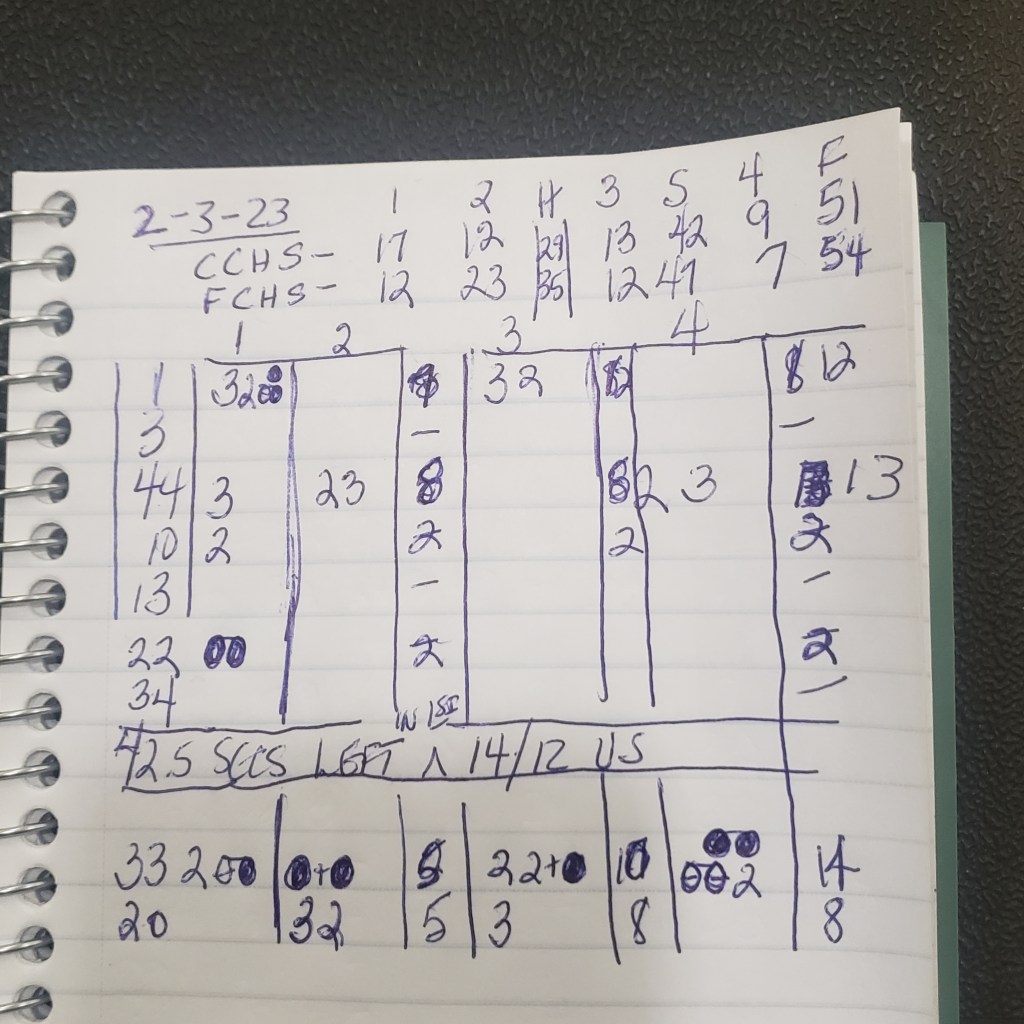 1 2 H 3 S 4 F
2-3-23
CCHS- 17 12 29 13 42 9 51
FCHS- 12 23 35 12 47 7 54
1 2 3 4
1 32 32 12 8 12
3 — —
44 3 23 8 8 2 3 13
10 2 2 2 2
13 — —
22 2 2
34 IN 1ST —
42.5 SECS LEFT ^ 14/12 US
33 2 + 22+ 10 2 14
20 32 5 3 8 8